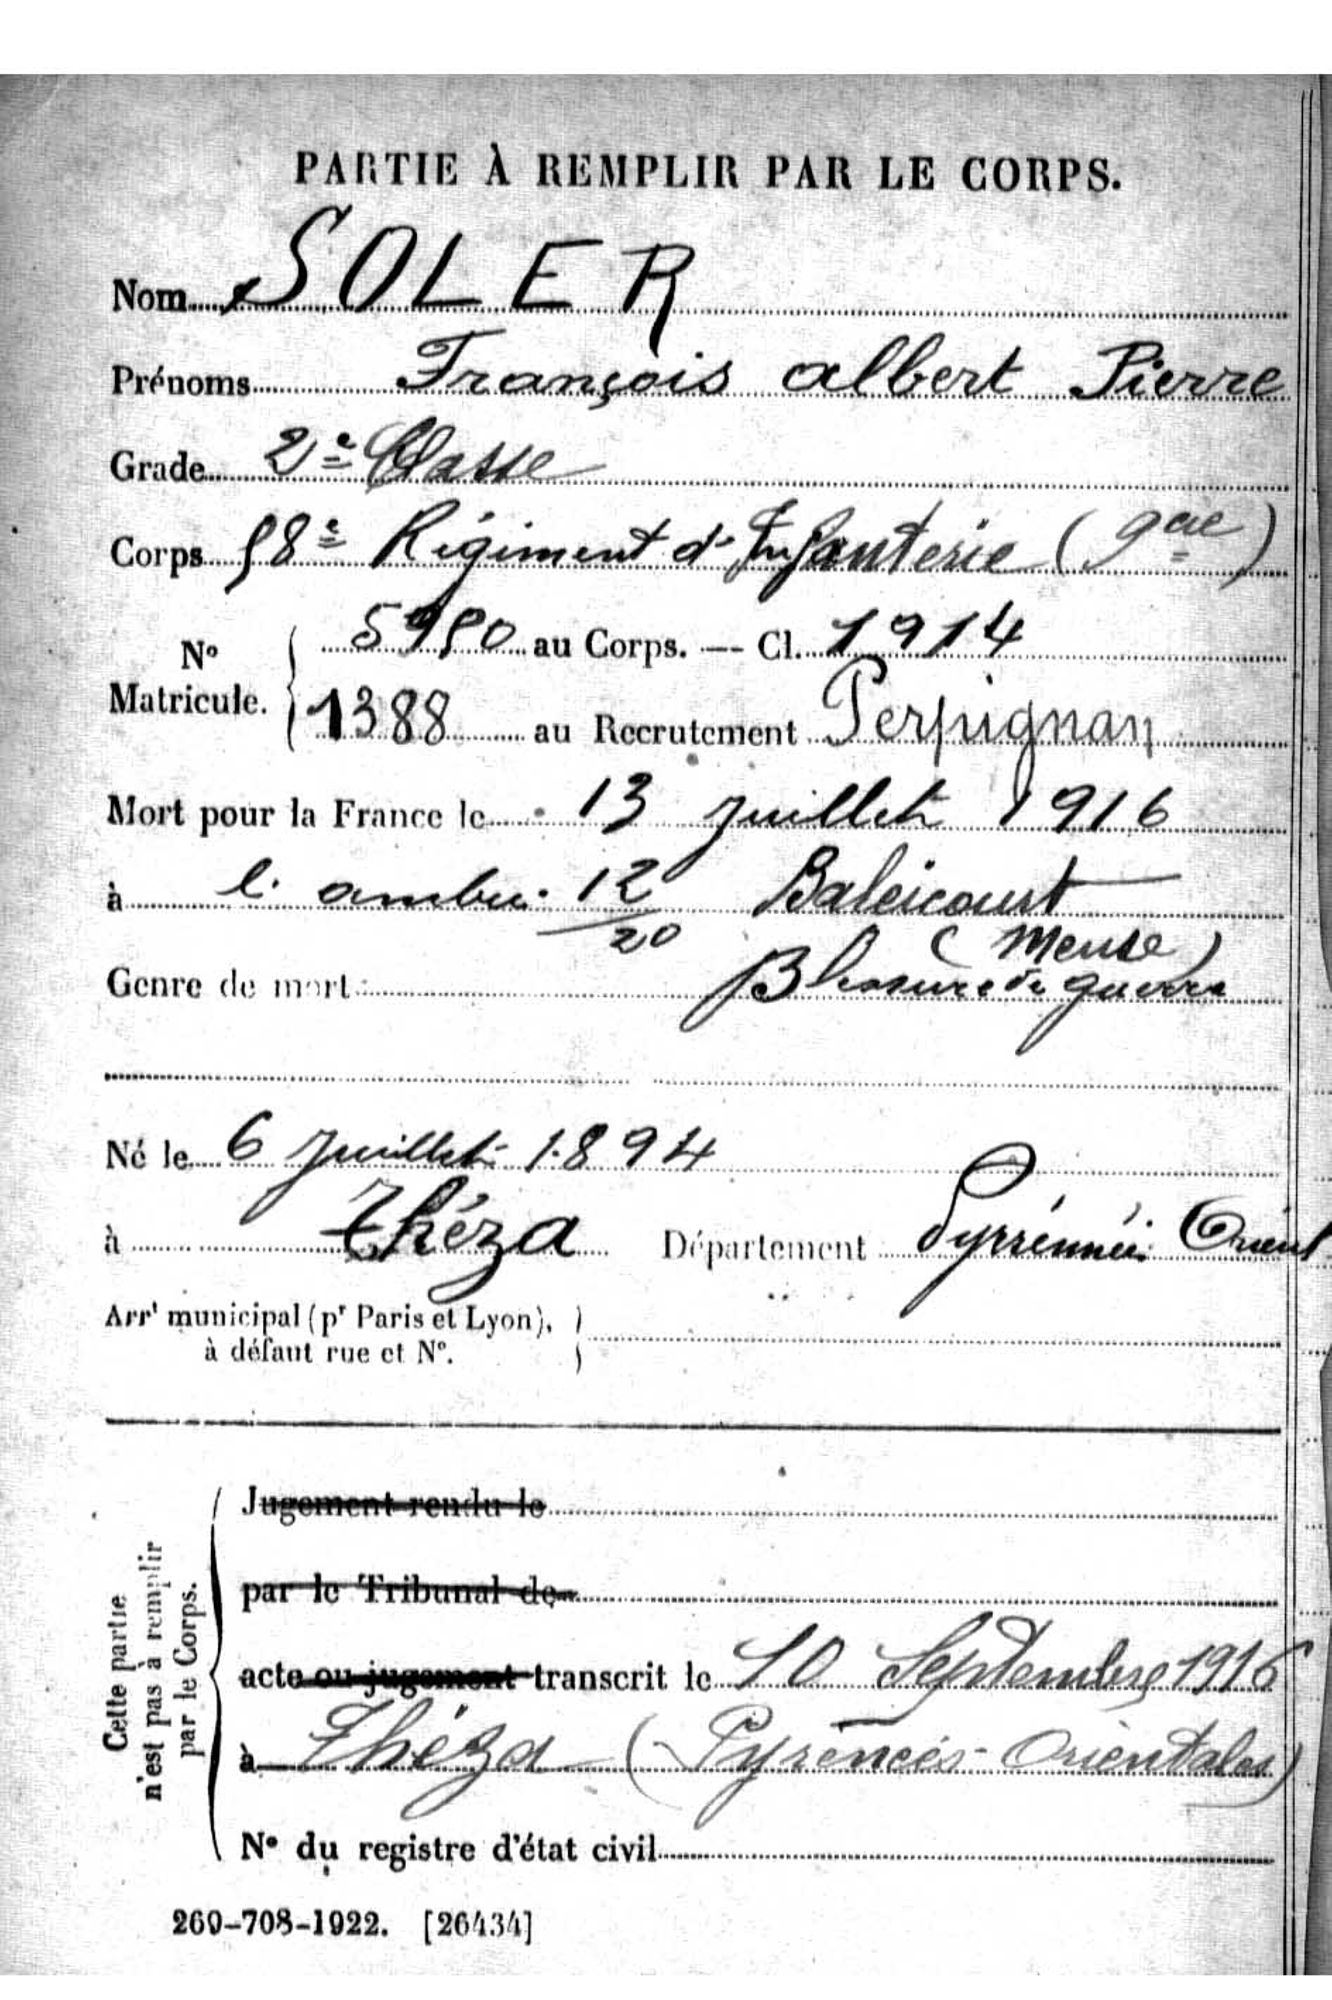 PARTIE À REMPLIR PAR LE CORPS.
Nom SOLER
Prénoms François albert Pierre
Grade 2e Classe
Corps 58e Régiment d'Infanterie (9cie)
No Matricule. 5980 au Corps. — Cl. 1914
1388 au Recrutement Perpignan
Mort pour la France le 13 juillet 1916
à l'ambu. 12/20 Baleicourt
(Meuse)
Genre de mort Blessure de guerre
Né le 6 Juillet 1894
à Théza Département Pyrrénnées Orient
Arrt municipal (pr Paris et Lyon),
à défaut rue et No.
Cette partie
n'est pas à remplir
par le Corps.
Jugement rendu le
par le Tribunal de
acte ou jugement transcrit le 10 Septembre 1916
à Théza (Pyrénées-Orientales)
No du registre d'état civil
260-708-1922. [26434]